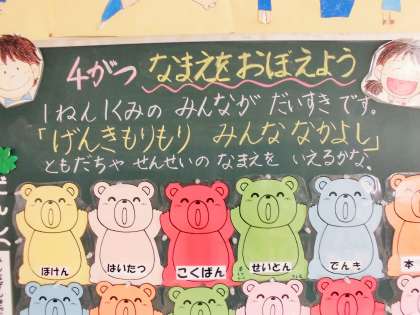 4がつ なまえをおぼえよう
1ねん1くみの みんなが だいすきです。
「げんきもりもり みんななかよし」
ともだちや せんせいの なまえを いえるかな。
ほけん
はいたつ
こくばん
せいとん
でんき
本